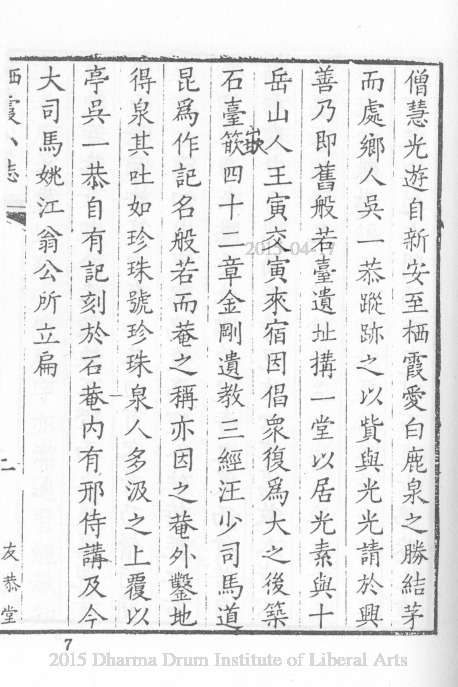 僧慧光遊自新安至栖霞愛白鹿泉之勝結茅
而處鄉人吳一恭蹤跡之以貲與光光請於興
善乃即舊般若臺遺址搆一堂以居光素與十
岳山人王寅交寅來宿因倡衆復爲大之後築
石臺篏嵌四十二章金剛遺教三經汪少司馬道
昆爲作記名般若而菴之稱亦因之菴外鑿地
得泉其吐如珍珠號珍珠泉人多汲之上覆以
亭吳一恭自有記刻於石菴內有邢侍講及今
大司馬姚江翁公所立扁
栖霞小志
二
友恭堂
7
2013-04-17
2015 Dharma Drum Institute of Liberal Arts